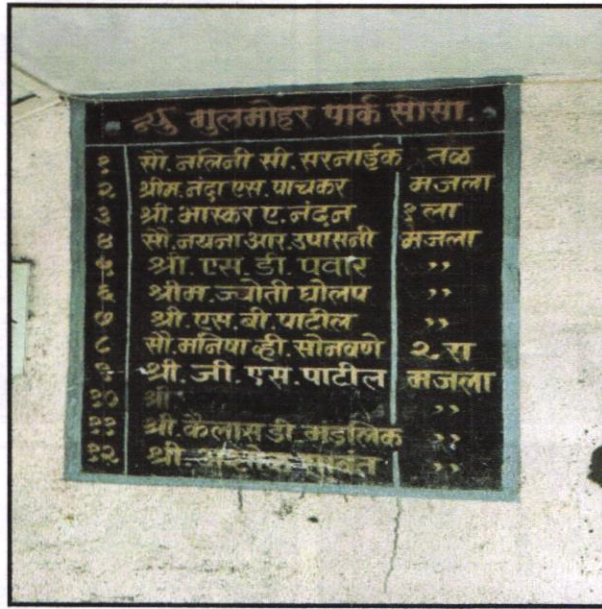 न्यु गुलमोहर पार्क सोसा.
१ सौ. नलिनी सी. सरनाईक तळ
२ श्रीम. नंदा एस. पाचकर मजला
३ श्री. भास्कर ए. नंदन १ ला
४ सौ. नयना आर. उपासनी मजला
५ श्री. एस. डी. पवार ,,
६ श्रीम. ज्योती घोलप ,,
७ श्री. एस. बी. पाटील ,,
८ सौ. मनिषा व्ही. सोनवणे २ रा
९ श्री. जी. एस. पाटील मजला
१० श्री ,,
११ श्री. कैलास डी. मंडलिक ,,
१२ श्री. सावंत ,,